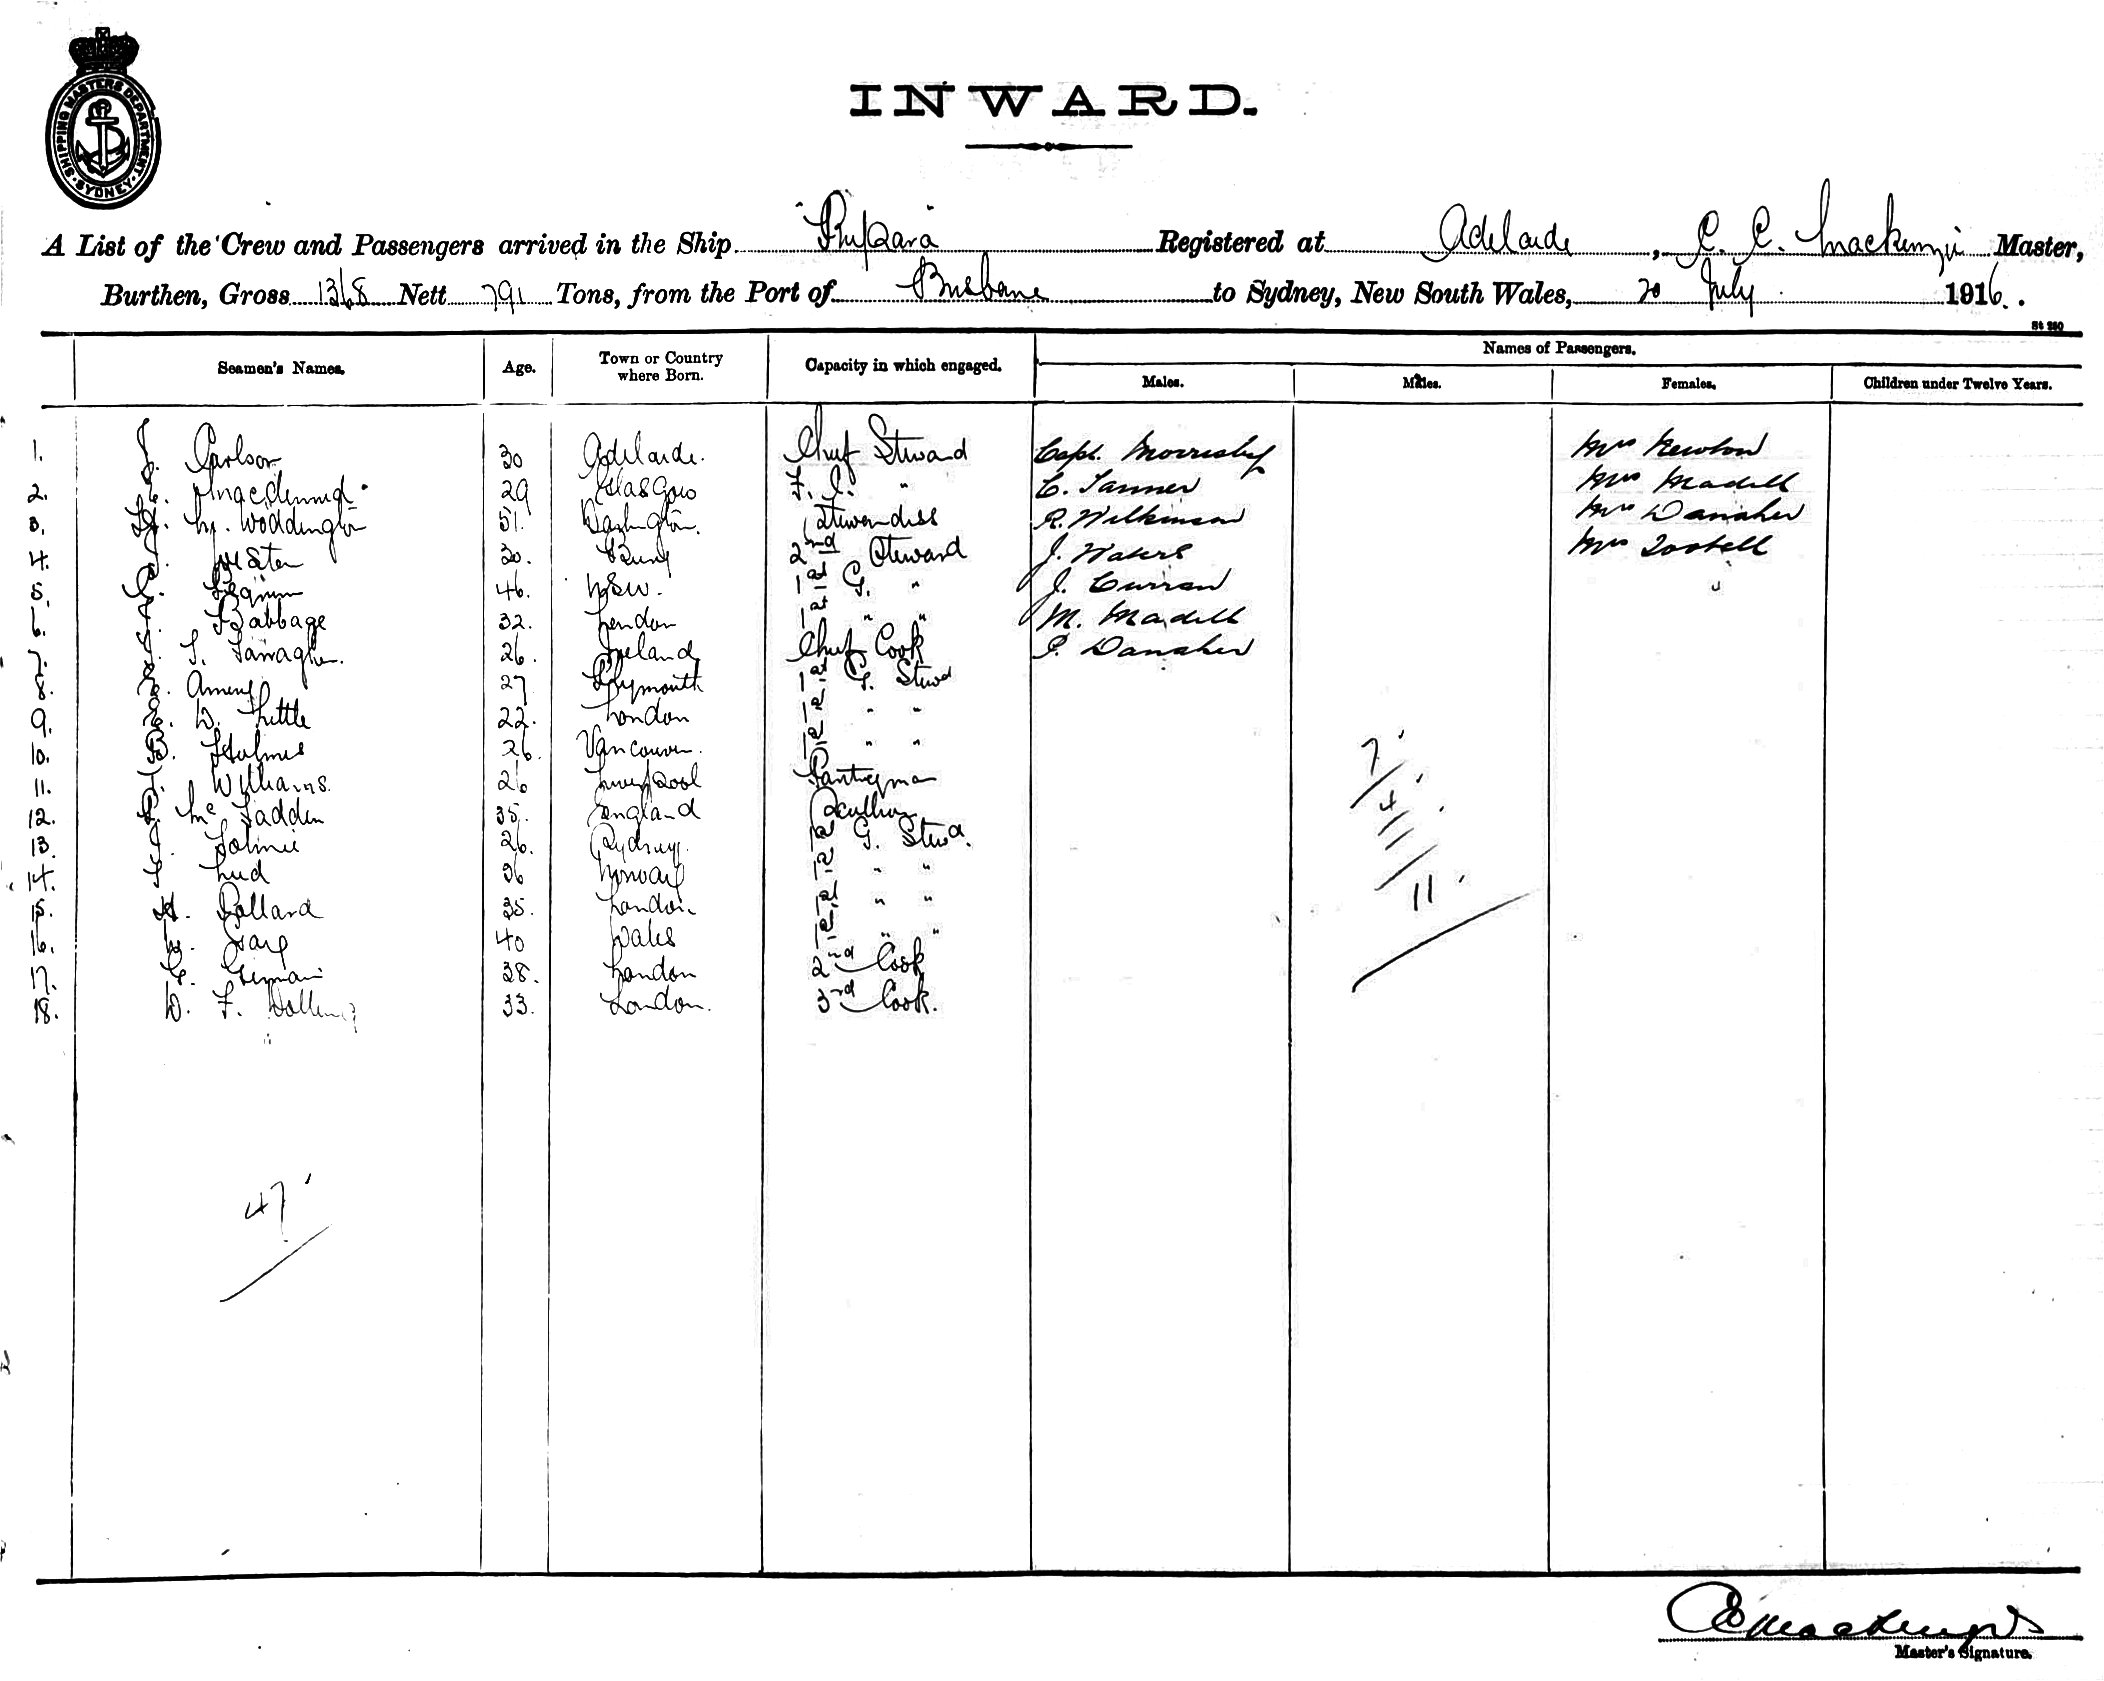 SHIPPING MASTERS DEPARTMENT · SYDNEY ·
INWARD.
A List of the Crew and Passengers arrived in the Ship "Rupara" Registered at Adelaide, C. C. Mackenzie Master,
Burthen, Gross 1368 Nett 791 Tons, from the Port of Brisbane to Sydney, New South Wales, 20 July 1916.
St 250
Seamen's Names. Age. Town or Country where Born. Capacity in which engaged. Names of Passengers.
Males. Males. Females. Children under Twelve Years.
1. J. Carlson 30 Adelaide. Chief Steward Capt. Morrisby Mrs Newton
2. Macdermid 29 Glasgow F. C. " C. Tanner Mrs Madell
3. M. Woddington 51. Darlington. Stewardess R. Wilkinson Mrs Danaher
4. 30. Bung 2nd Steward J. Waters Mrs Tootell
5. 46. NSW. 1st G. " J. Curran
6. Babbage 32. London 1st " " M. Madell
7. 26. Ireland Chief Cook P. Danaher
8. 27 Plymouth 1st G. Stewd
9. W. Little 22. London " "
10. B. Holmes 26. Vancouver. " "
11. Williams. 26 Liverpool Pantryman
12. McFadden 35. England Scullery
13. Tolmie 26. Sydney. G. Stewd.
14. Lud 36 Norway " "
15. H. Pollard 35. London " "
16. 40 Wales " "
17. 38. London 2nd Cook
18. W. F. 33. London. 3rd Cook.
7
4
11
47
C C Mackenzie
Master's Signature.